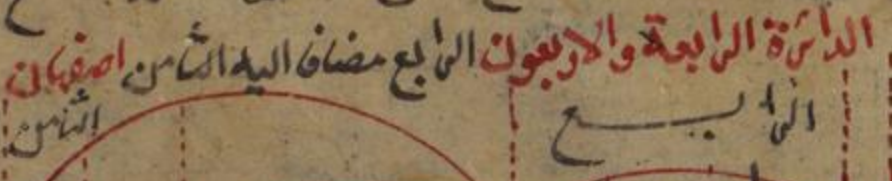 الدائرة الرابعة والاربعون الرابع مضاف اليه الثامن اصفهان
الرابع
الثامن